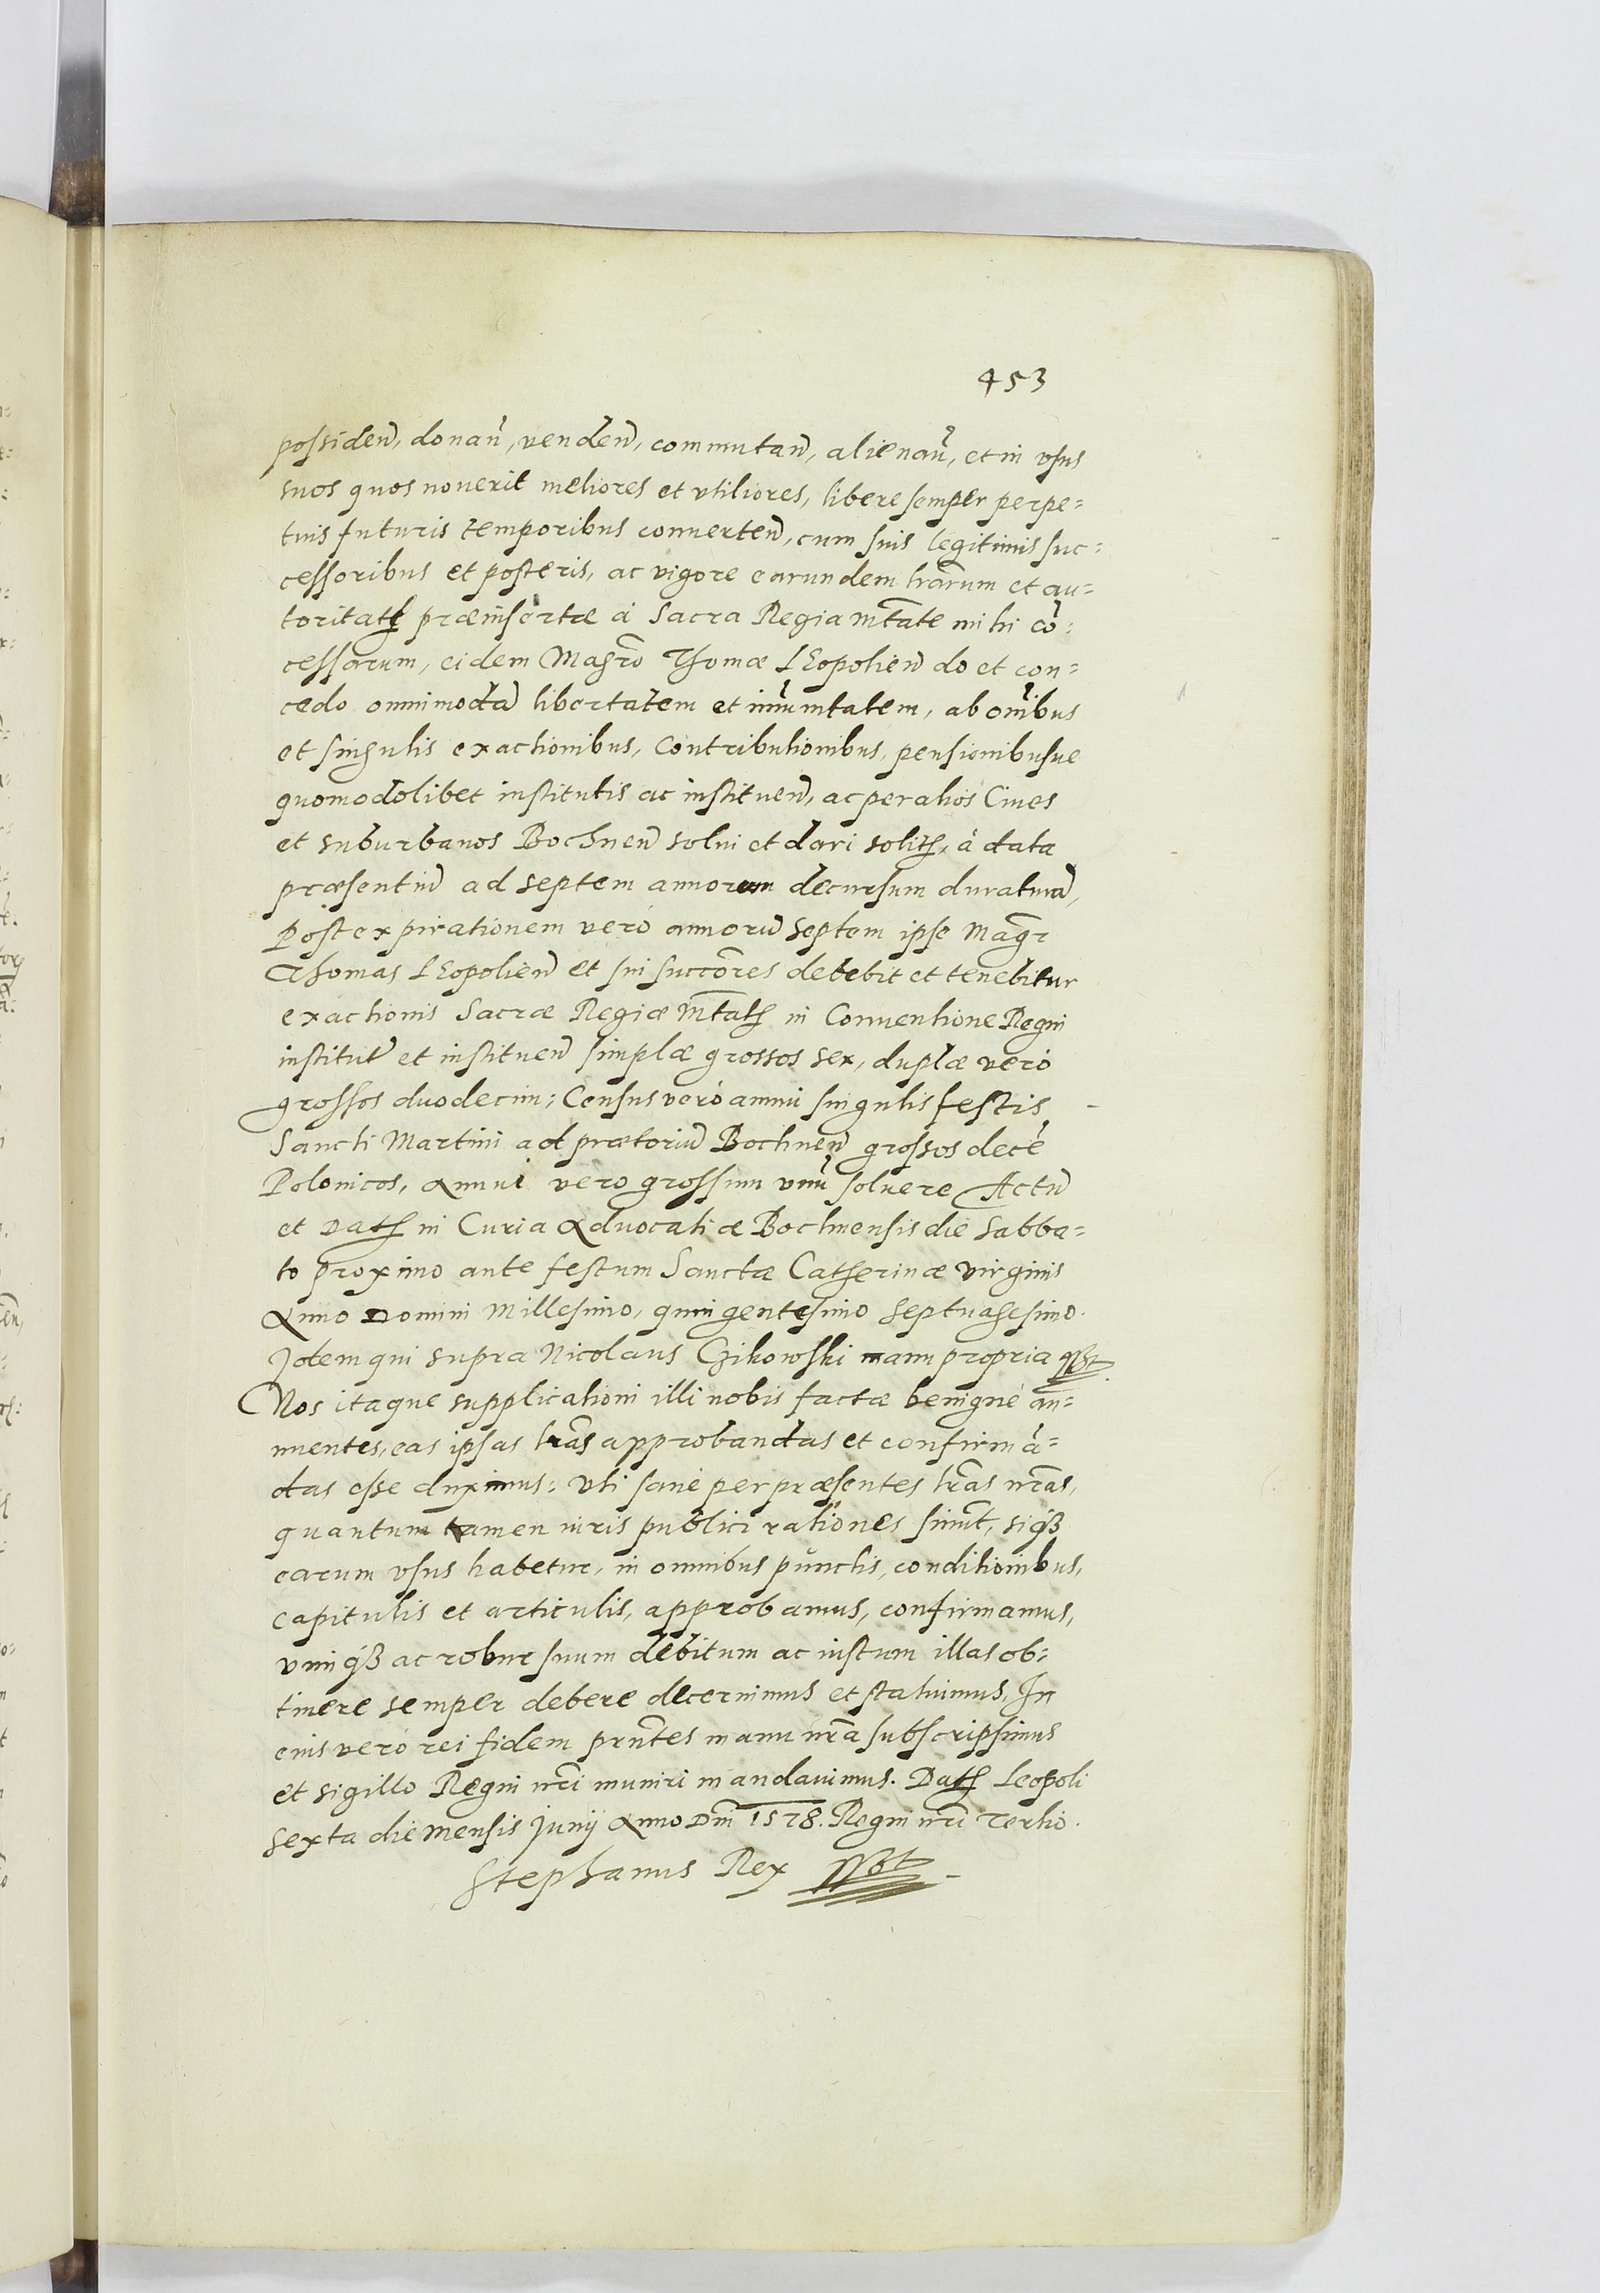 453
possiden̄, donan̄, venden̄, commutan̄, alienan̄, et in vsus
suos quos nouerit meliores et vtiliores, libere semper perpe=
tuis futuris temporibus conuerten̄, cum suis legitimis suc=
cessoribus et posteris, ac vigore earundem l̄rarum et au=
toritatis præinsertæ à Sacra Regia M̄tate mihi cō=
cessarum, eidem Magr̄o Thomæ LEopolien̄ do et con=
cedo omnimodā libertatem et im̄unitatem, ab om̄ibus
et singulis exactionibus, Contributionibus, pensionibusue
quomodolibet institutis ac instituen̄, ac per alios Ciues
et suburbanos Bochnen̄ solui et dari solitis, à data
præsentiū ad septem annorum decursum duraturā,
Post expirationem verò annorū septem ipse Mag̅r
Thomas LEopolien̄ et sui succ̄ores debebit et tenebitur
exactionis Sacræ Regiæ M̄tatis in Conuentione Regni
institut̄ et instituen̄ simplæ grossos sex, duplæ verò
grossos duodecim; Census verò annui singulis festis
Sancti Martini ad prætoriū Bochnen̄ grossos decē
Polonicos, Annui vero grossum vnū soluere Actū
et Datis in Curia Aduocatiæ Bochnensis die Sabba=
to proximo ante festum Sanctæ Catherinæ virginis
Anno Domini Millesimo, quingentesimo septuagesimo.
Jdem qui supra Nicolaus Czikowski manu propria sst
Nos itaque supplicationi illi nobis factæ benignè an=
nuentes, eas ipsas l̄ras approbandas et confirmā=
das esse duximus: Vti sanè per præsentes l̄ras n̄ras,
quantum tamen iuris publici rationes sinunt, siqȝ
earum vsus habetur, in omnibus punctis, conditionibus,
capitulis et articulis, approbamus, confirmamus,
vimqȝ ac robur suum debitum ac iustum illas ob=
tinere semper debere decernimus et statuimus, In
cuius verò rei fidem pr̄ntes manu n̄ra subscripsimus
et sigillo Regni n̄ri muniri mandauimus. Datis Leopoli
sexta die mensis Junij Anno Dn̄i 1578. Regni n̄ri Tertio.
Stephanus Rex sst